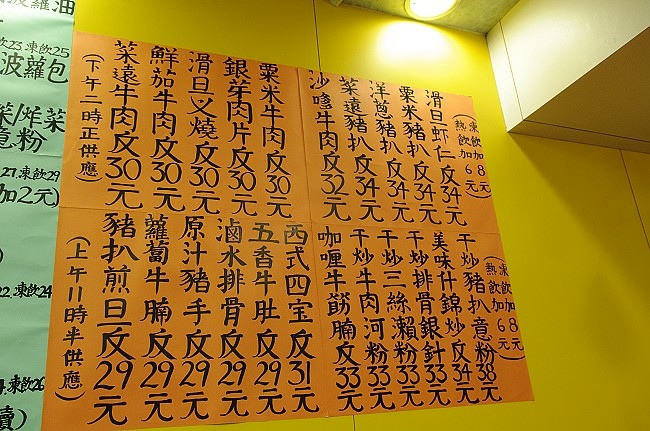 波蘿油
飲23凍飲25
波蘿包
菜/炸菜
意粉
凍飲29
加2元)
22.凍飲24
凍飲26
賣)
(下午二時正供應)
菜遠牛肉反30元
鮮茄牛肉反30元
滑旦叉燒反30元
銀芽肉片反30元
粟米牛肉反30元
沙嗲牛肉反32元
菜遠豬扒反34元
洋蔥豬扒反34元
粟米豬扒反34元
滑旦虾仁反34元
(熱飲加6元
凍飲加8元)
(上午11時半供應)
豬扒煎旦反29元
蘿蔔牛腩反29元
原汁豬手反29元
滷水排骨反29元
五香牛肚反29元
西式四宝反31元
咖喱牛筋腩反33元
干炒牛肉河粉33元
干炒三絲瀨粉33元
干炒排骨銀針33元
美味什錦炒反34元
干炒豬扒意粉38元
(熱飲加6元
凍飲加8元)